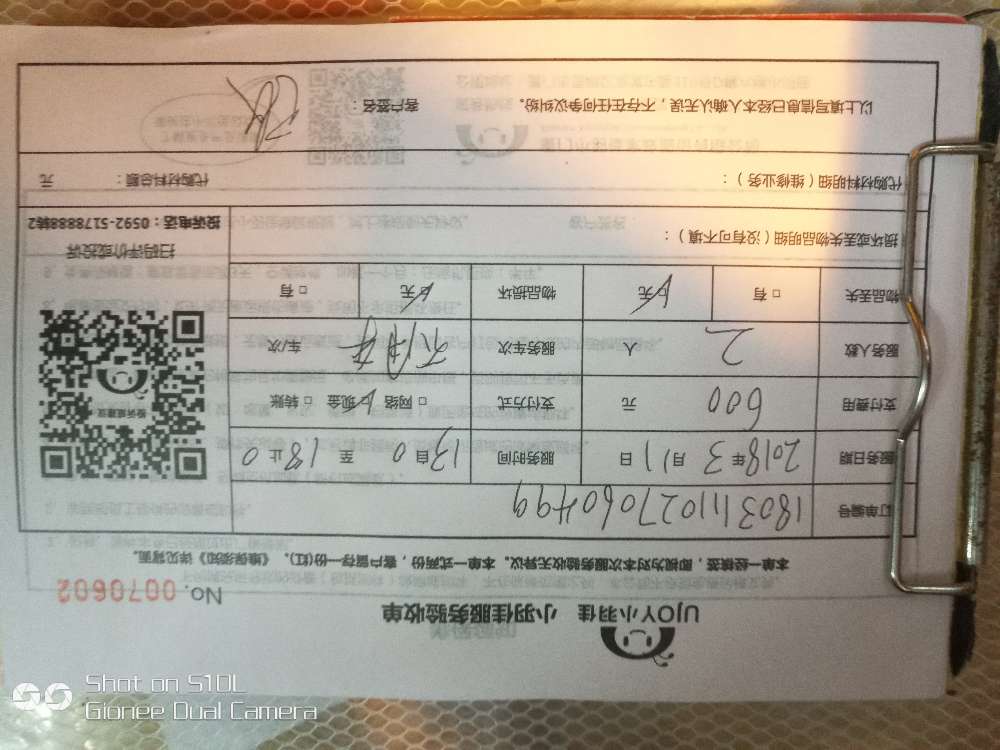 UJOY小羽佳 小羽佳服务验收单
No. 0070602
本单一经核签，即视为对本次服务验收无异议。本单一式两份，客户留存一份(红)，《维保须知》详见背面。
订单编号 1803111027060499
服务日期 2018年3月11日 服务时间 13自0至18止0
支付费用 600 元 支付方式 □网络 ☑现金 □转账
服务人数 2 人 服务车次 车次
物品丢失 □有 ☑无 物品损坏 ☑无 □有
投诉或建议
损坏或丢失物品明细（没有可不填）：
扫码评价或投诉
投诉电话：0592-5178888转2
代购材料明细（维修业务）： 代购材料总额： 元
以上填写信息已经本人确认无误，不存在任何争议纠纷。 客户签名：
Shot on S10L
Gionee Dual Camera